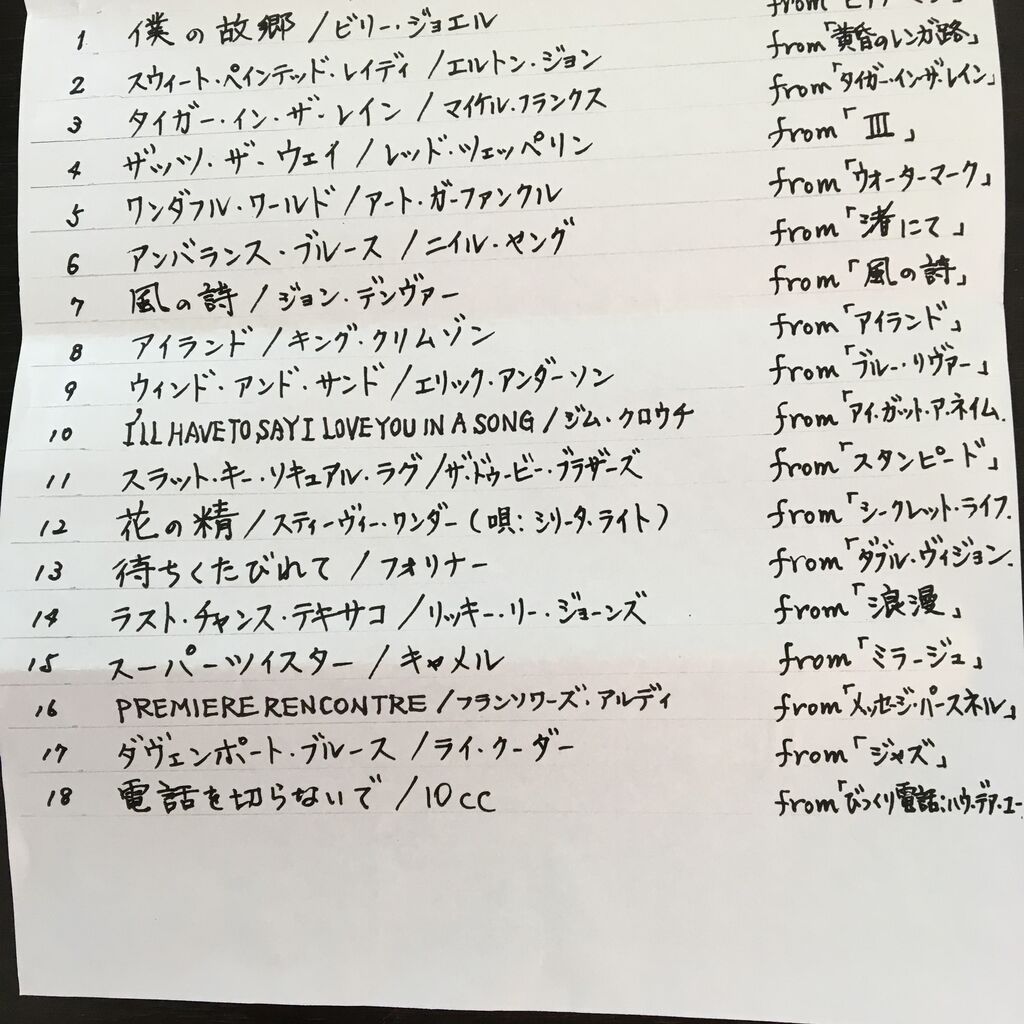 1 僕の故郷/ビリー・ジョエル from「ピアノ・マン」
2 スウィート・ペインテッド・レイディ/エルトン・ジョン from「黄昏のレンガ路」
3 タイガー・イン・ザ・レイン/マイケル・フランクス from「タイガー・イン・ザ・レイン」
4 ザッツ・ザ・ウェイ/レッド・ツェッペリン from「III」
5 ワンダフル・ワールド/アート・ガーファンクル from「ウォーターマーク」
6 アンバランス・ブルース/ニイル・ヤング from「渚にて」
7 風の詩/ジョン・デンヴァー from「風の詩」
8 アイランド/キング・クリムゾン from「アイランド」
9 ウィンド・アンド・サンド/エリック・アンダーソン from「ブルー・リヴァー」
10 I'LL HAVE TO SAY I LOVE YOU IN A SONG/ジム・クロウチ from「アイ・ガット・ア・ネイム
11 スラット・キー・ソキュアル・ラグ/ザ・ドゥービー・ブラザーズ from「スタンピード」
12 花の精/スティーヴィー・ワンダー(唄:シリータ・ライト) from「シークレット・ライフ
13 待ちくたびれて/フォリナー from「ダブル・ヴィジョン
14 ラスト・チャンス・テキサコ/リッキー・リー・ジョーンズ from「浪漫」
15 スーパーツイスター/キャメル from「ミラージュ」
16 PREMIERE RENCONTRE/フランソワーズ・アルディ from「メッセージ・パースネル」
17 ダヴェンポート・ブルース/ライ・クーダー from「ジャズ」
18 電話を切らないで/10cc from「びっくり電話:ハウ・デア・ユー